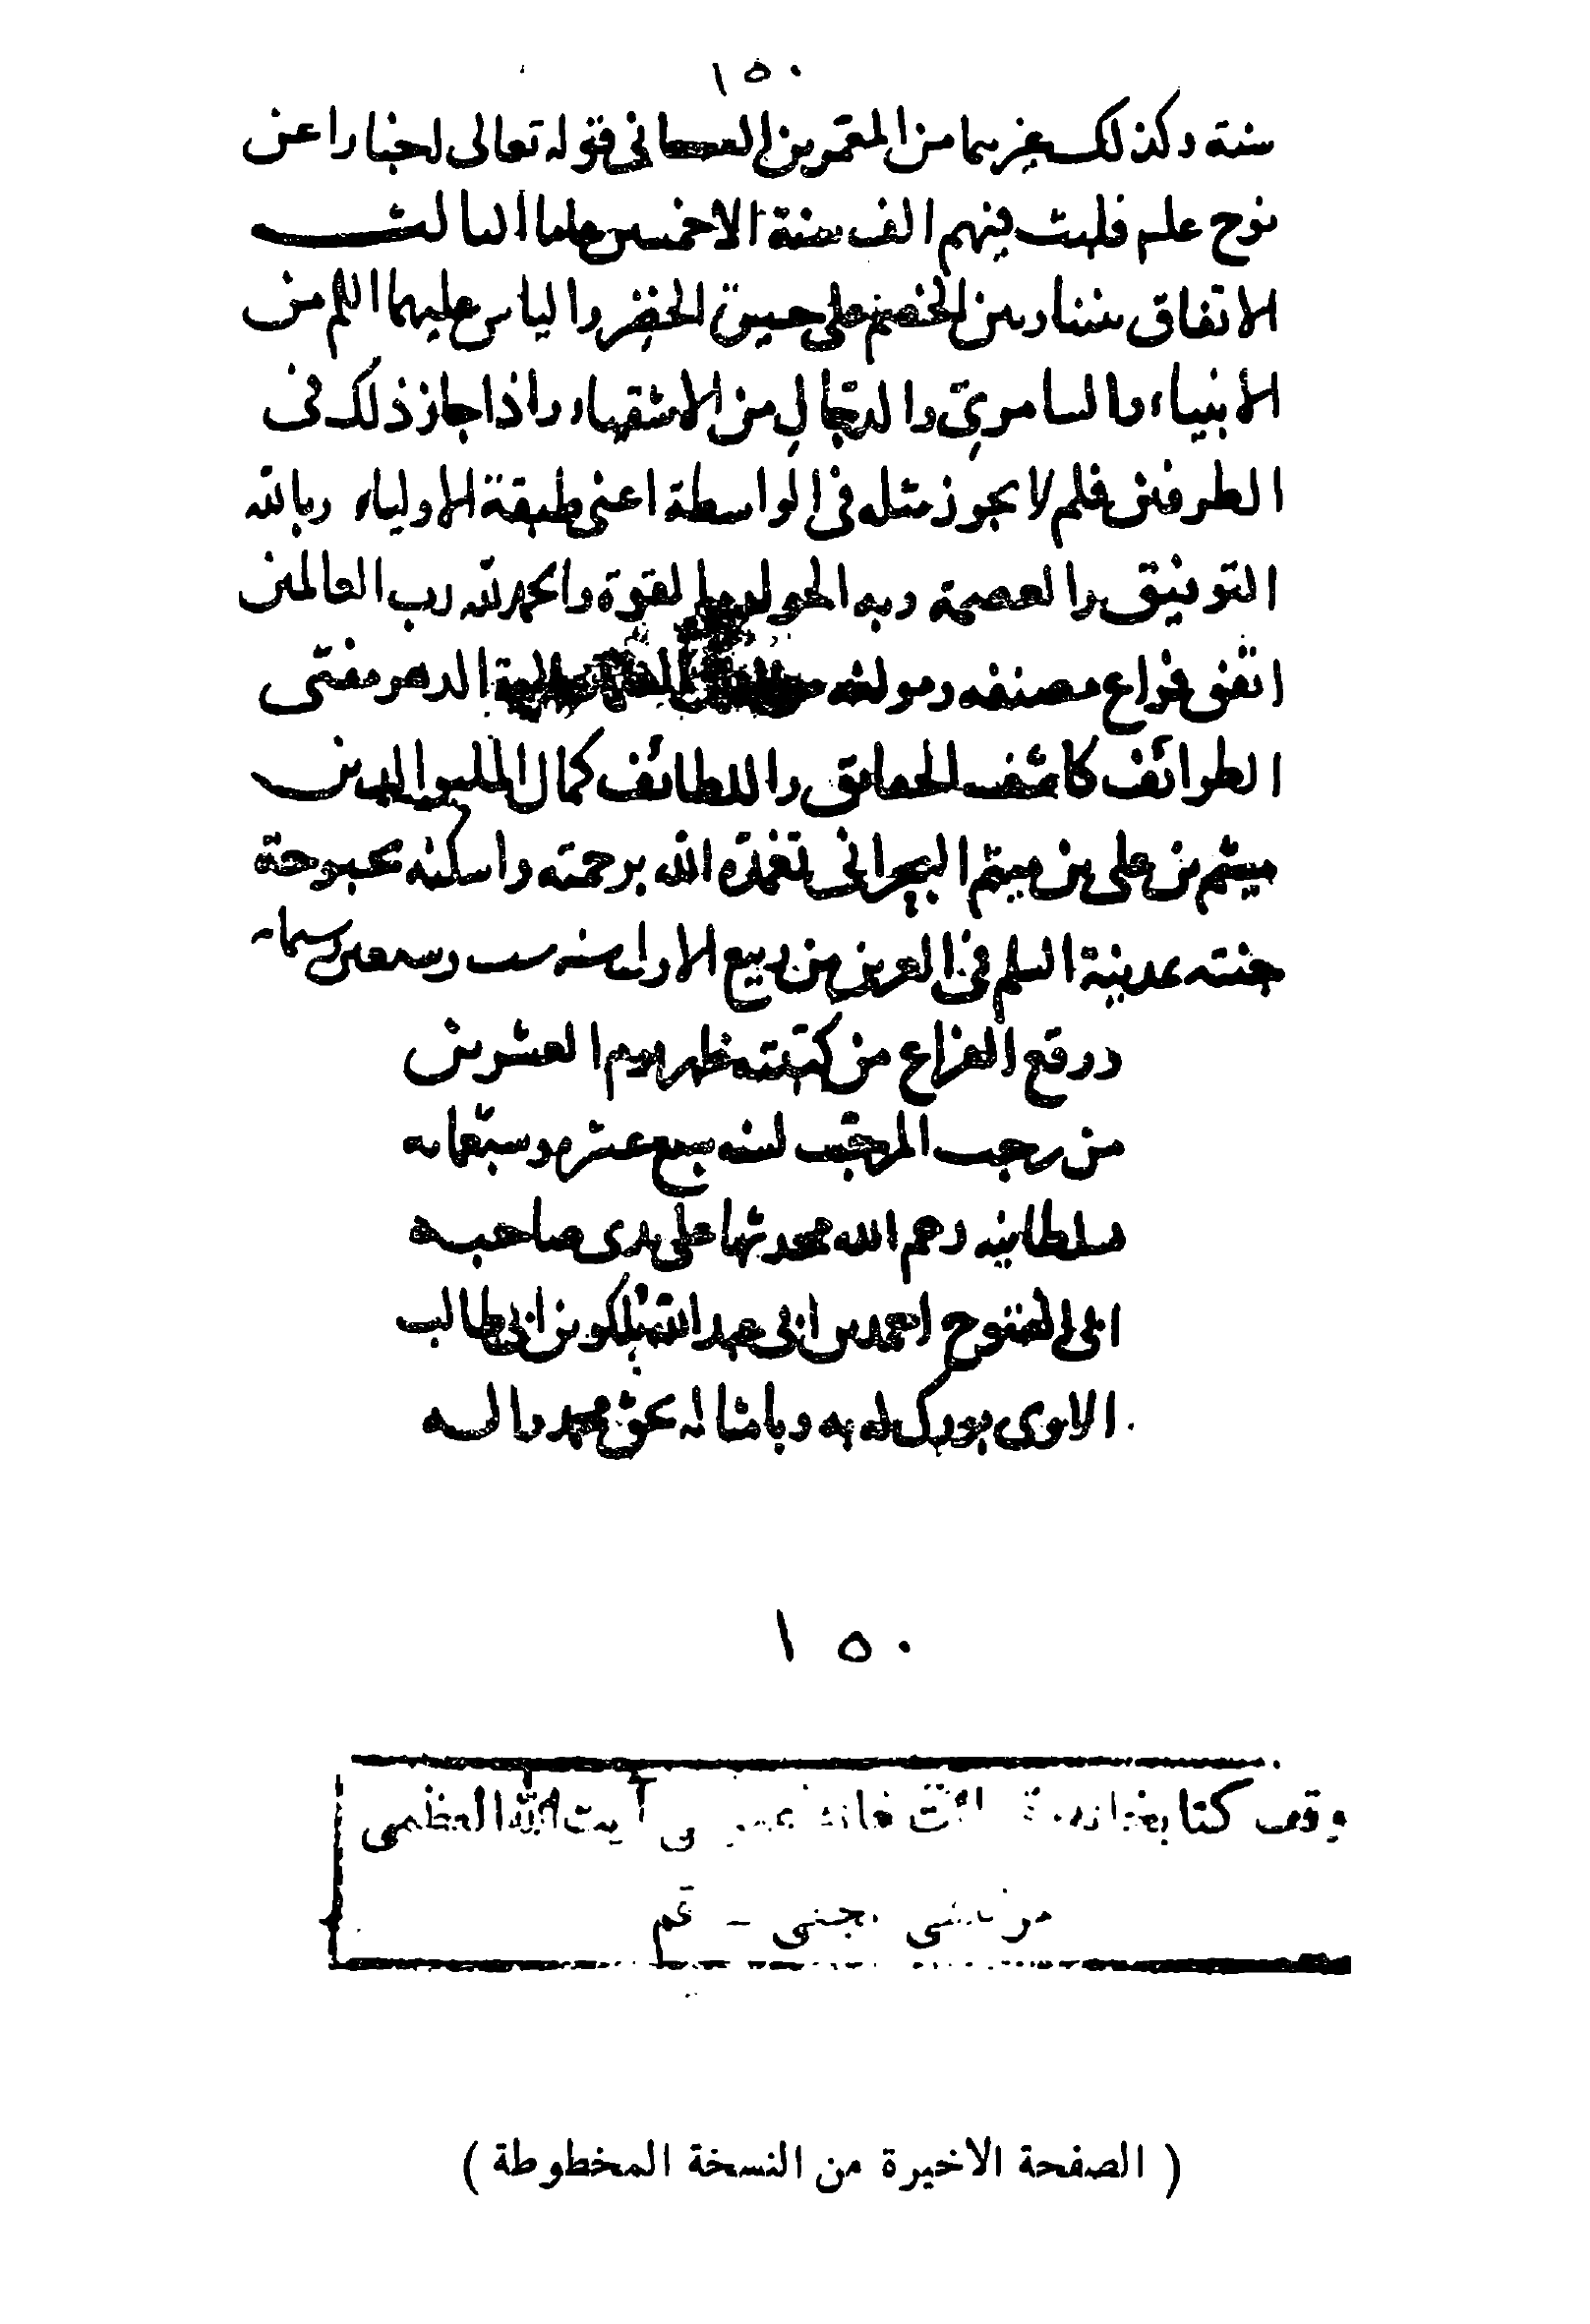 ١٥٠
سنة وكذلك غيرهما من المعمرين الثاني قوله تعالى اخبارا عن
نوح علم فلبث فيهم الف سنة الا خمسين عاما الثالث
الاتفاق بيننا وبين الخصم على حيوة الخضر والياس عليهما السلم من
الانبياء والسامري والدجال من الاشقياء واذا جاز ذلك في
الطرفين فلم لا يجوز مثله في الواسطة اعني طبقة الاولياء وبالله
التوفيق والعصمة وبه الحول والقوة والحمد لله رب العالمين
اتفق فراغ مصنفه ومولفه الدهر مفتى
الطوائف كاشف الحقايق واللطائف كمال الملة والدين
ميثم بن على بن ميثم البحراني تغمده الله برحمته واسكنه بحبوحة
جنته بمدينة السلم في العشرين من ربيع الاول سنه ست وسبعين وستمايه
ووقع الفراغ من كتبته ظهر يوم العشرين
من رجب المرجب لسنه سبع عشره وسبعمايه
بسلطانيه رحم الله محدثها على يدى صاحبه
ابي الفتوح احمد بن ابي عبد الله بلكو بن ابي طالب
الاوى بورك له به وبامثاله بحق محمد واله
١٥٠
وقف كتابخانه آيت الله العظمى
مرعشى نجفى - قم
( الصفحة الاخيرة من النسخة المخطوطة )